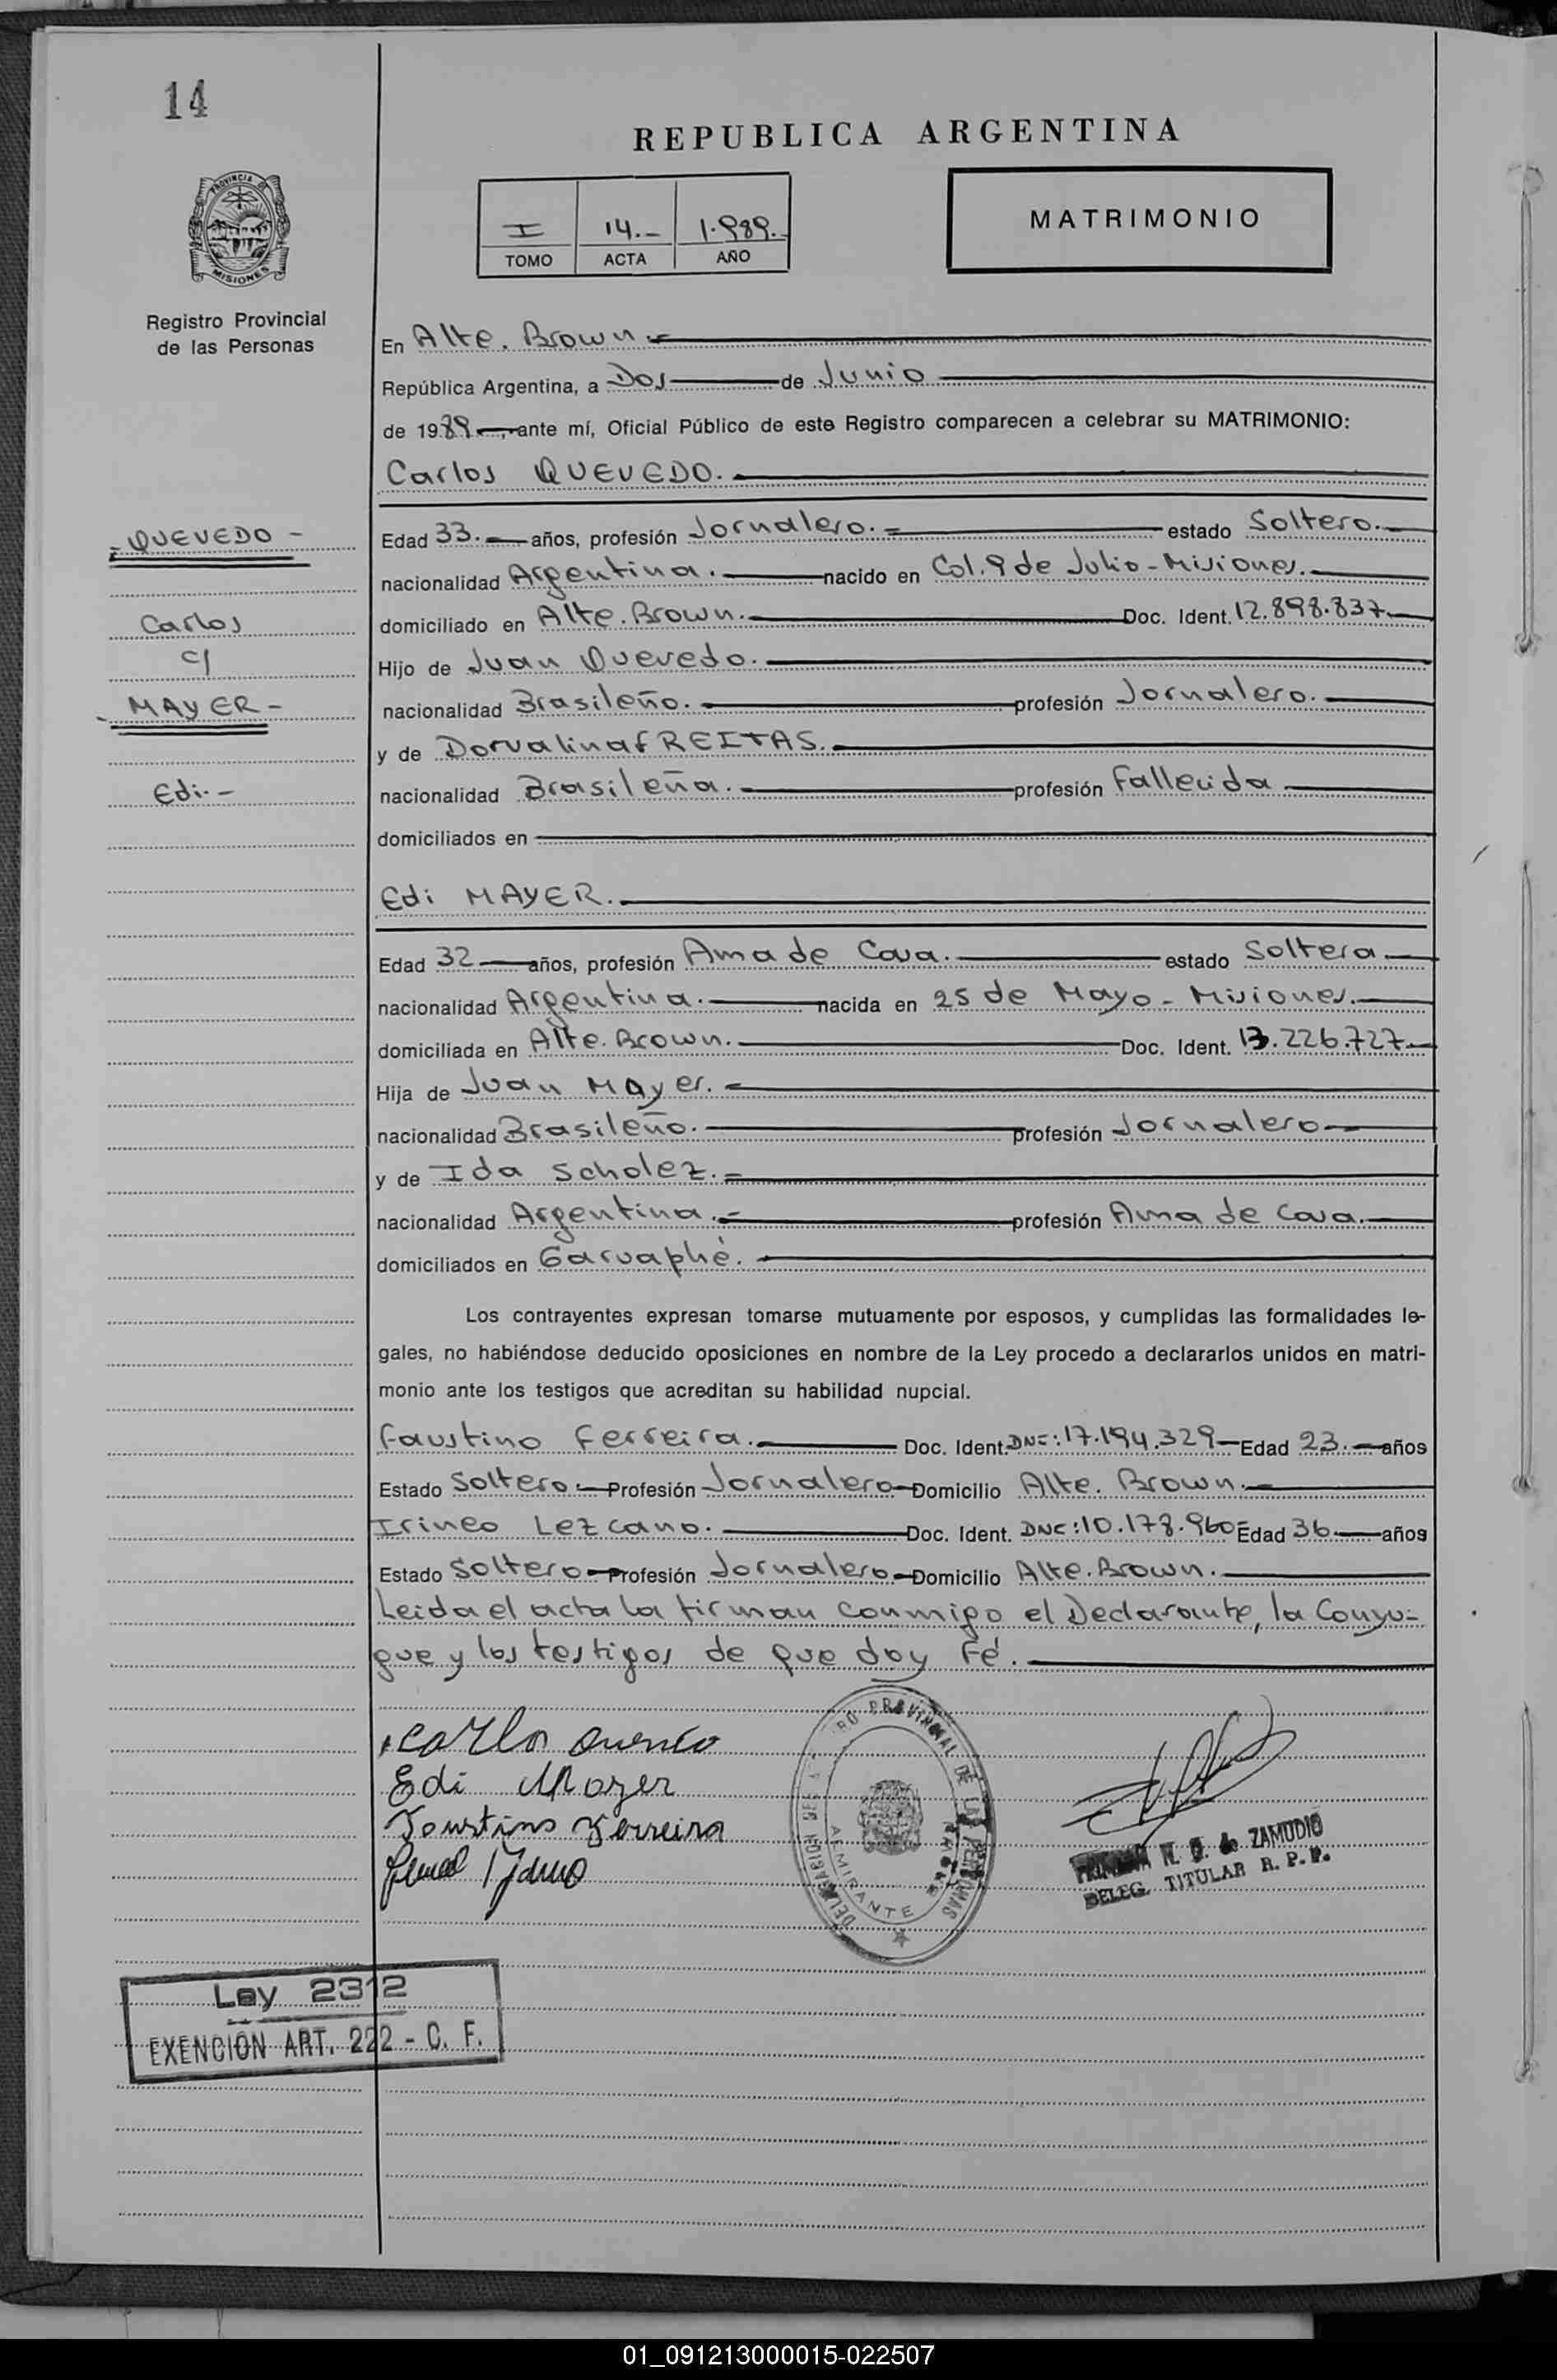 14
REPUBLICA ARGENTINA
PROVINCIA DE
MISIONES
I 14.- 1.989.-
TOMO ACTA AÑO
MATRIMONIO
Registro Provincial
de las Personas
En Alte. Brown.-
República Argentina, a Dos de Junio
de 1989, ante mí, Oficial Público de este Registro comparecen a celebrar su MATRIMONIO:
Carlos QUEVEDO.
- QUEVEDO -
Carlos
c/
- MAYER -
Edi.-
Edad 33.- años, profesión Jornalero.- estado Soltero.-
nacionalidad Argentina. nacido en Col. 9 de Julio - Misiones.
domiciliado en Alte. Brown. Doc. Ident. 12.898.837
Hijo de Juan Quevedo.
nacionalidad Brasileño. profesión Jornalero.
y de Dorvalina fREITAS.
nacionalidad Brasileña. profesión Fallecida
domiciliados en
Edi MAYER.
Edad 32 años, profesión Ama de Casa. estado Soltera
nacionalidad Argentina. nacida en 25 de Mayo - Misiones.
domiciliada en Alte. Brown. Doc. Ident. 13.226.727
Hija de Juan Mayer.
nacionalidad Brasileño. profesión Jornalero
y de Ida Scholez.
nacionalidad Argentina.- profesión Ama de Casa.
domiciliados en Garuaphé.
Los contrayentes expresan tomarse mutuamente por esposos, y cumplidas las formalidades le-
gales, no habiéndose deducido oposiciones en nombre de la Ley procedo a declararlos unidos en matri-
monio ante los testigos que acreditan su habilidad nupcial.
Faustino Ferreira. Doc. Ident. DNI: 17.194.329 Edad 23. años
Estado Soltero. Profesión Jornalero Domicilio Alte. Brown.
Irineo Lezcano. Doc. Ident. DNI: 10.178.960 Edad 36. años
Estado Soltero Profesión Jornalero Domicilio Alte. Brown.
Leida el acta la firman conmigo el Declarante, la Conyu-
gue y los testigos de que doy Fé.
Edi Mayer
Faustino Ferreira
PROVINCIAL DE LAS PERSONAS
ALMIRANTE
ZAMUDIO
DELEG. TITULAR R. P. P.
Ley 2312
EXENCION ART. 222 - C. F.
01_091213000015-022507